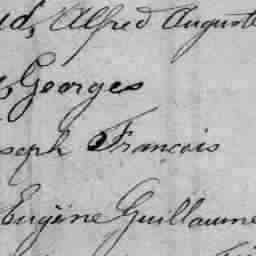 Alfred Auguste
Georges
Joseph François
Eugène Guillaume